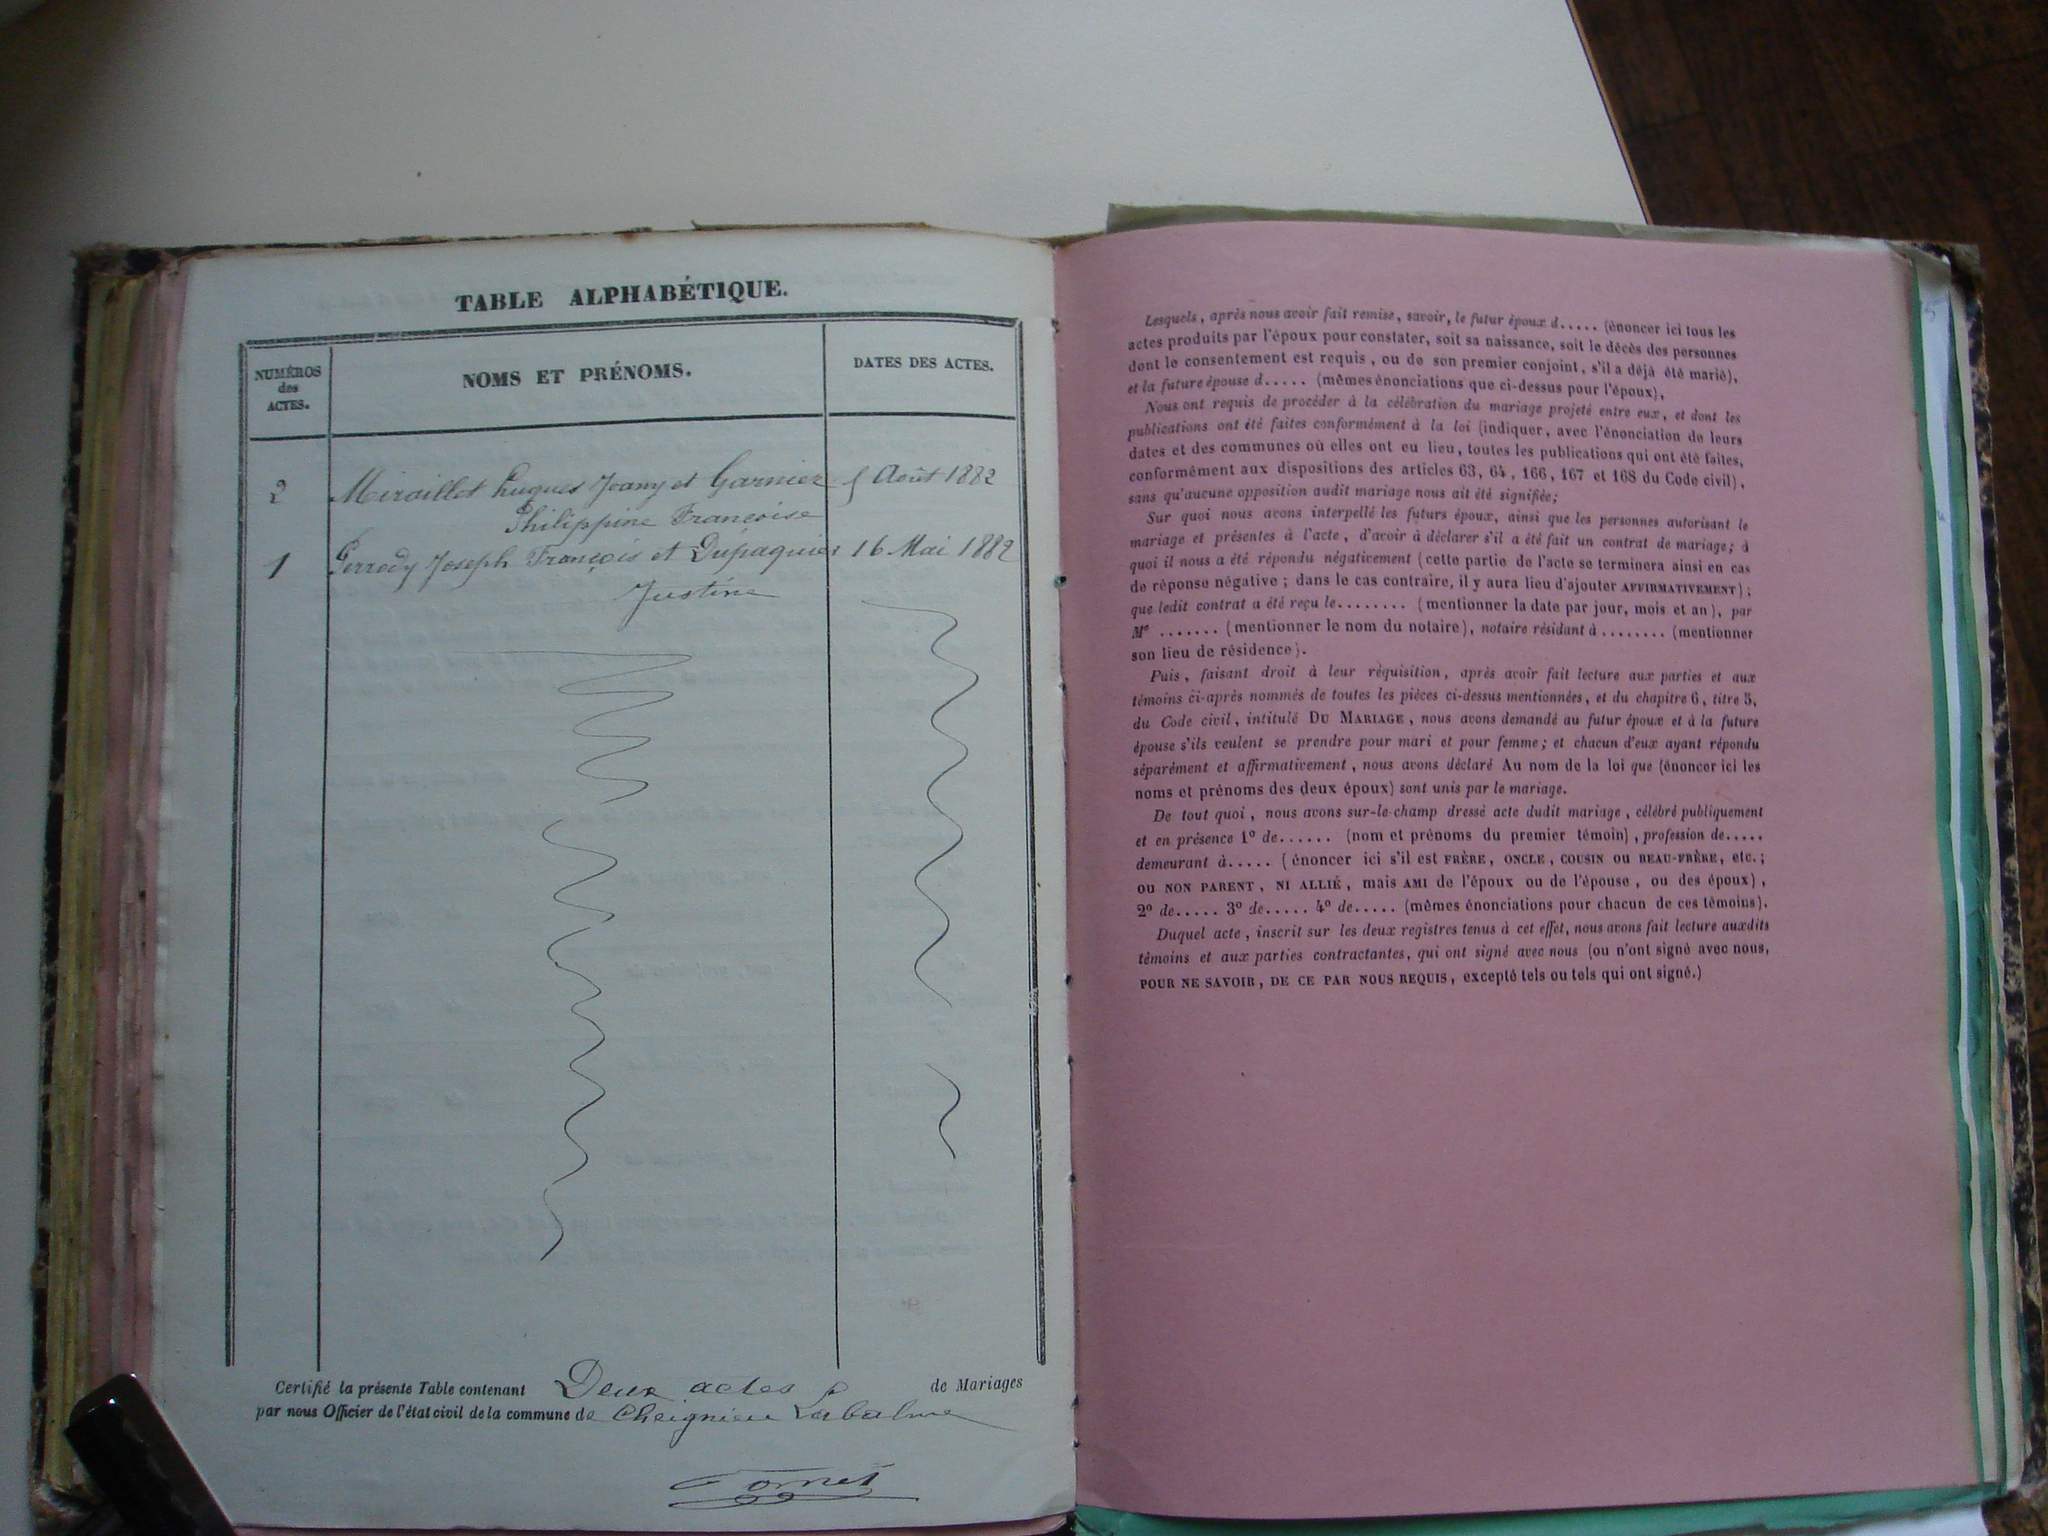 TABLE ALPHABÉTIQUE.
NUMÉROS
des
ACTES.
NOMS ET PRÉNOMS.
DATES DES ACTES.
2 Miraillet hugues Joany et Garnier 5 Août 1882
Philippine Françoise
1 Perrody Joseph François et Dupaquier 16 Mai 1882
Justine
Certifié la présente Table contenant Deux actes de Mariages
par nous Officier de l'état civil de la commune de Cheignieu Labalme
Lesquels, après nous avoir fait remise, savoir, le futur époux d..... (énoncer ici tous les
actes produits par l'époux pour constater, soit sa naissance, soit le décès des personnes
dont le consentement est requis, ou de son premier conjoint, s'il a déjà été marié),
et la future épouse d..... (mêmes énonciations que ci-dessus pour l'époux),
Nous ont requis de procéder à la célébration du mariage projeté entre eux, et dont les
publications ont été faites conformément à la loi (indiquer, avec l'énonciation de leurs
dates et des communes où elles ont eu lieu, toutes les publications qui ont été faites,
conformément aux dispositions des articles 63, 64, 166, 167 et 168 du Code civil),
sans qu'aucune opposition audit mariage nous ait été signifiée;
Sur quoi nous avons interpellé les futurs époux, ainsi que les personnes autorisant le
mariage et présentes à l'acte, d'avoir à déclarer s'il a été fait un contrat de mariage; à
quoi il nous a été répondu négativement (cette partie de l'acte se terminera ainsi en cas
de réponse négative; dans le cas contraire, il y aura lieu d'ajouter AFFIRMATIVEMENT);
que ledit contrat a été reçu le........ (mentionner la date par jour, mois et an), par
Me ....... (mentionner le nom du notaire), notaire résidant à ........ (mentionner
son lieu de résidence).
Puis, faisant droit à leur réquisition, après avoir fait lecture aux parties et aux
témoins ci-après nommés de toutes les pièces ci-dessus mentionnées, et du chapitre 6, titre 5,
du Code civil, intitulé DU MARIAGE, nous avons demandé au futur époux et à la future
épouse s'ils veulent se prendre pour mari et pour femme; et chacun d'eux ayant répondu
séparément et affirmativement, nous avons déclaré Au nom de la loi que (énoncer ici les
noms et prénoms des deux époux) sont unis par le mariage.
De tout quoi, nous avons sur-le-champ dressé acte dudit mariage, célébré publiquement
et en présence 1º de...... (nom et prénoms du premier témoin), profession de.....
demeurant à..... (énoncer ici s'il est FRÈRE, ONCLE, COUSIN OU BEAU-FRÈRE, etc.;
OU NON PARENT, NI ALLIÉ, mais AMI de l'époux ou de l'épouse, ou des époux),
2º de..... 3º de..... 4º de..... (mêmes énonciations pour chacun de ces témoins).
Duquel acte, inscrit sur les deux registres tenus à cet effet, nous avons fait lecture auxdits
témoins et aux parties contractantes, qui ont signé avec nous (ou n'ont signé avec nous,
POUR NE SAVOIR, DE CE PAR NOUS REQUIS, excepté tels ou tels qui ont signé.)